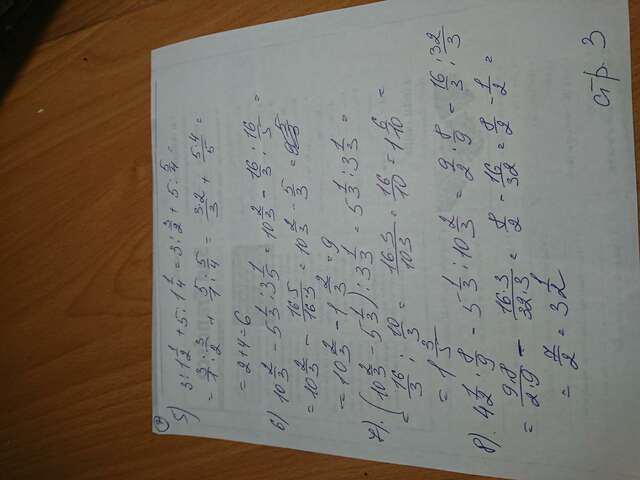 5) 3 : 1 1/2 + 5 : 1 1/4 = 3 : 3/2 + 5 : 5/4 =
= 3/1 : 3/2 + 5/1 : 5/4 = 3·2/3 + 5·4/5 =
= 2 + 4 = 6
6) 10 2/3 - 5 1/3 : 3 1/3 = 10 2/3 - 16/3 : 10/3 =
= 10 2/3 - 16·3/ = 10 2/3 - 5/3 =
= 10 2/3 - 1 2/3 = 9
7). (10 2/3 - 5 1/3) : 3 1/3 = 5 1/3 : 3 1/3 =
= 16/3 : 10/3 = 16·3/10·3 = 16/10 = 1 6/10 =
= 1 3/5
8). 4 1/2 · 8/9 - 5 1/3 : 10 2/3 = 9/2 · 8/9 - 16/3 : 32/3
= 9·8/2·9 - 16·3/32·3 = 8/2 - 16/32 = 8/2 - 1/2 =
= 7/2 = 3 1/2
стр. 3